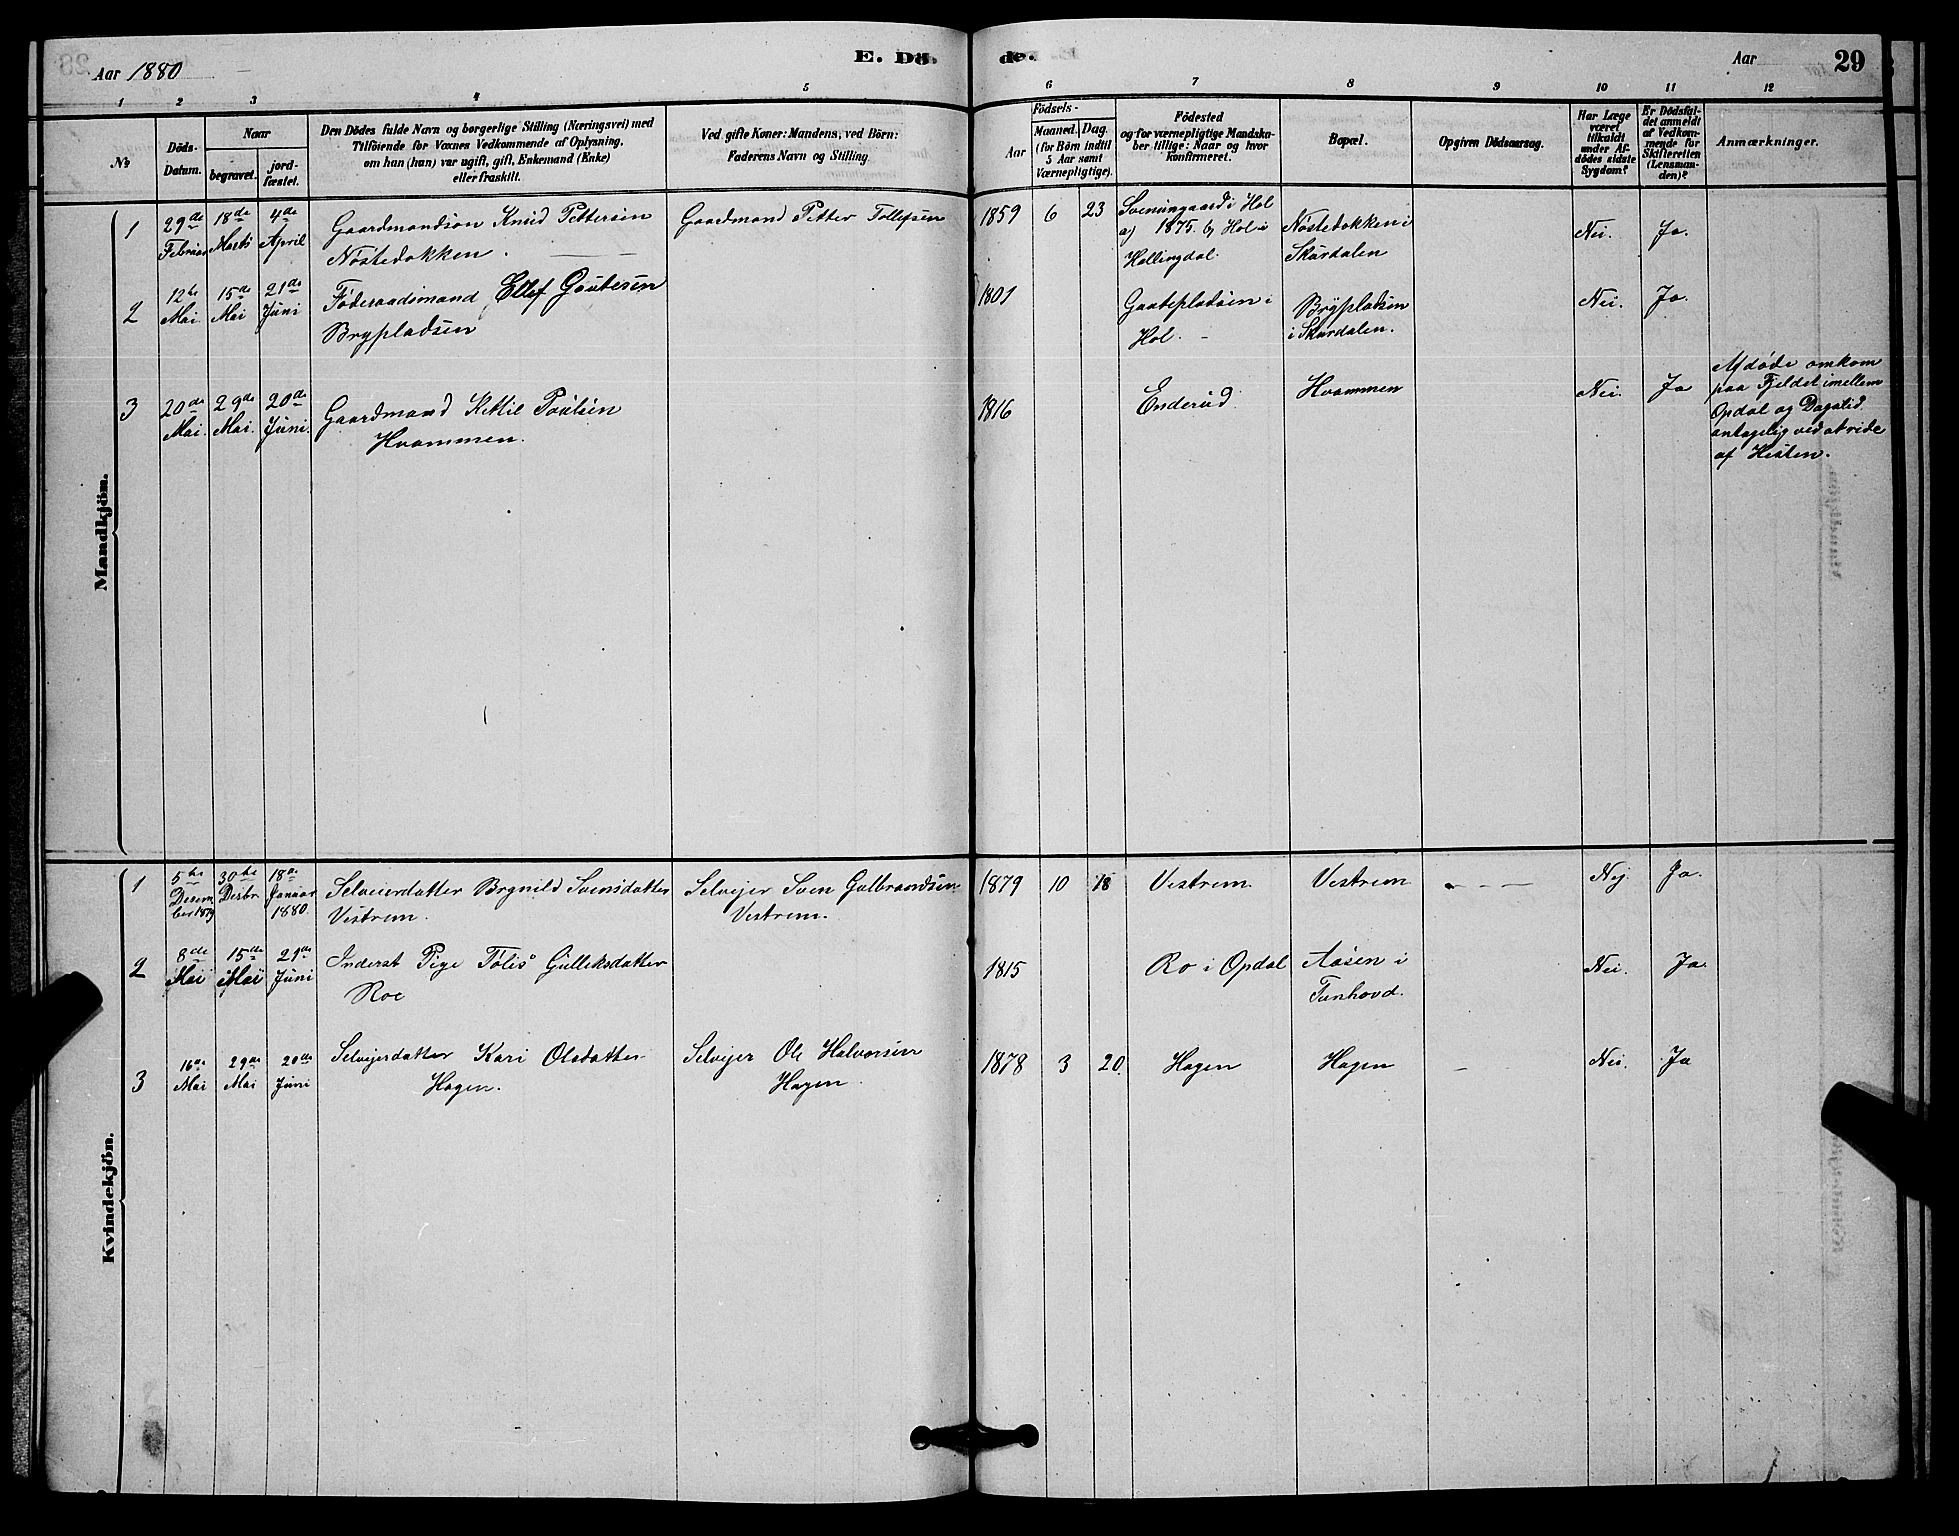 Aar 1880
E. Dö-
de.
Aar
29
1 2 3 4 5 6 7 8 9 10 11 12
No
Döds-
Datum.
Naar
begravet.
jord-
fæstet.
Den Dödes fulde Navn og borgerlige Stilling (Næringsvei) med
Tilföiende for Voxnes Vedkommende af Oplysning,
om han (hun) var ugift, gift, Enkemand (Enke)
eller fraskilt.
Ved gifte Koner: Mandens, ved Börn:
Faderens Navn og Stilling.
Födsels-
Aar
Maaned. Dag.
(for Börn indtil
5 Aar samt
Værnepligtige).
Födested
og for værnepligtige Mandska-
ber tillige: Naar og hvor
konfirmeret.
Bopæl.
Opgiven Dödsaarsag.
Har Læge
været
tilkaldt
under Af-
dödes sidste
Sygdom?
Er Dödsfal-
det anmeldt
af Vedkom-
mende for
Skifteretten
(Lensman-
den)?
Anmærkninger.
Mandkjön.
1 29de Februar 18de Marts 4de April Gaardmandsön Knud Pettersen Gaardmand Petter Tollefsen 1859 6 23 Svenungaard i Hol Nöstedokken i Nei. Ja.
Nöstedokken. a) 1875. b) Hol i Skurdalen
Hallingdal.
2 12te Mai. 15de Mai 21de Juni Föderaadsmand Ellef Goutesen 1801 Gaatepladsen i Brypladsen Nei. Ja.
Brypladsen Hol. i Skurdalen.
3 20de Mai. 29de Mai. 20de Juni. Gaardmand Kettil Poulsen 1816 Enderud Hvammen Nei. Ja
Hvammen.
Afdöde omkom
paa Fjeldet imellem
Opdal og Dagalid
antagelig ved at ride
af Hesten.
Kvindekjön.
1 5te Desem- ber 1879 30te Desbr. 18de Januar 1880. Selveierdatter Borgnild Svensdatter Selveier Sven Gulbrandsen 1879 10 18 Vestrem Vestrem Nej Ja.
Vestrem. Vestrem.
2 8de Mai 15de Mai 21de Juni Inderst Pige Tölis Gulleksdatter 1815 Ro i Opdal Aasen i Nei. Ja.
Roe Tunhovd.
3 16de Mai 29de Mai 20de Juni Selveierdatter Kari Olsdatter Selveier Ole Halvorsen 1878 3 20. Hagen Hagen Nei. Ja
Hagen. Hagen.